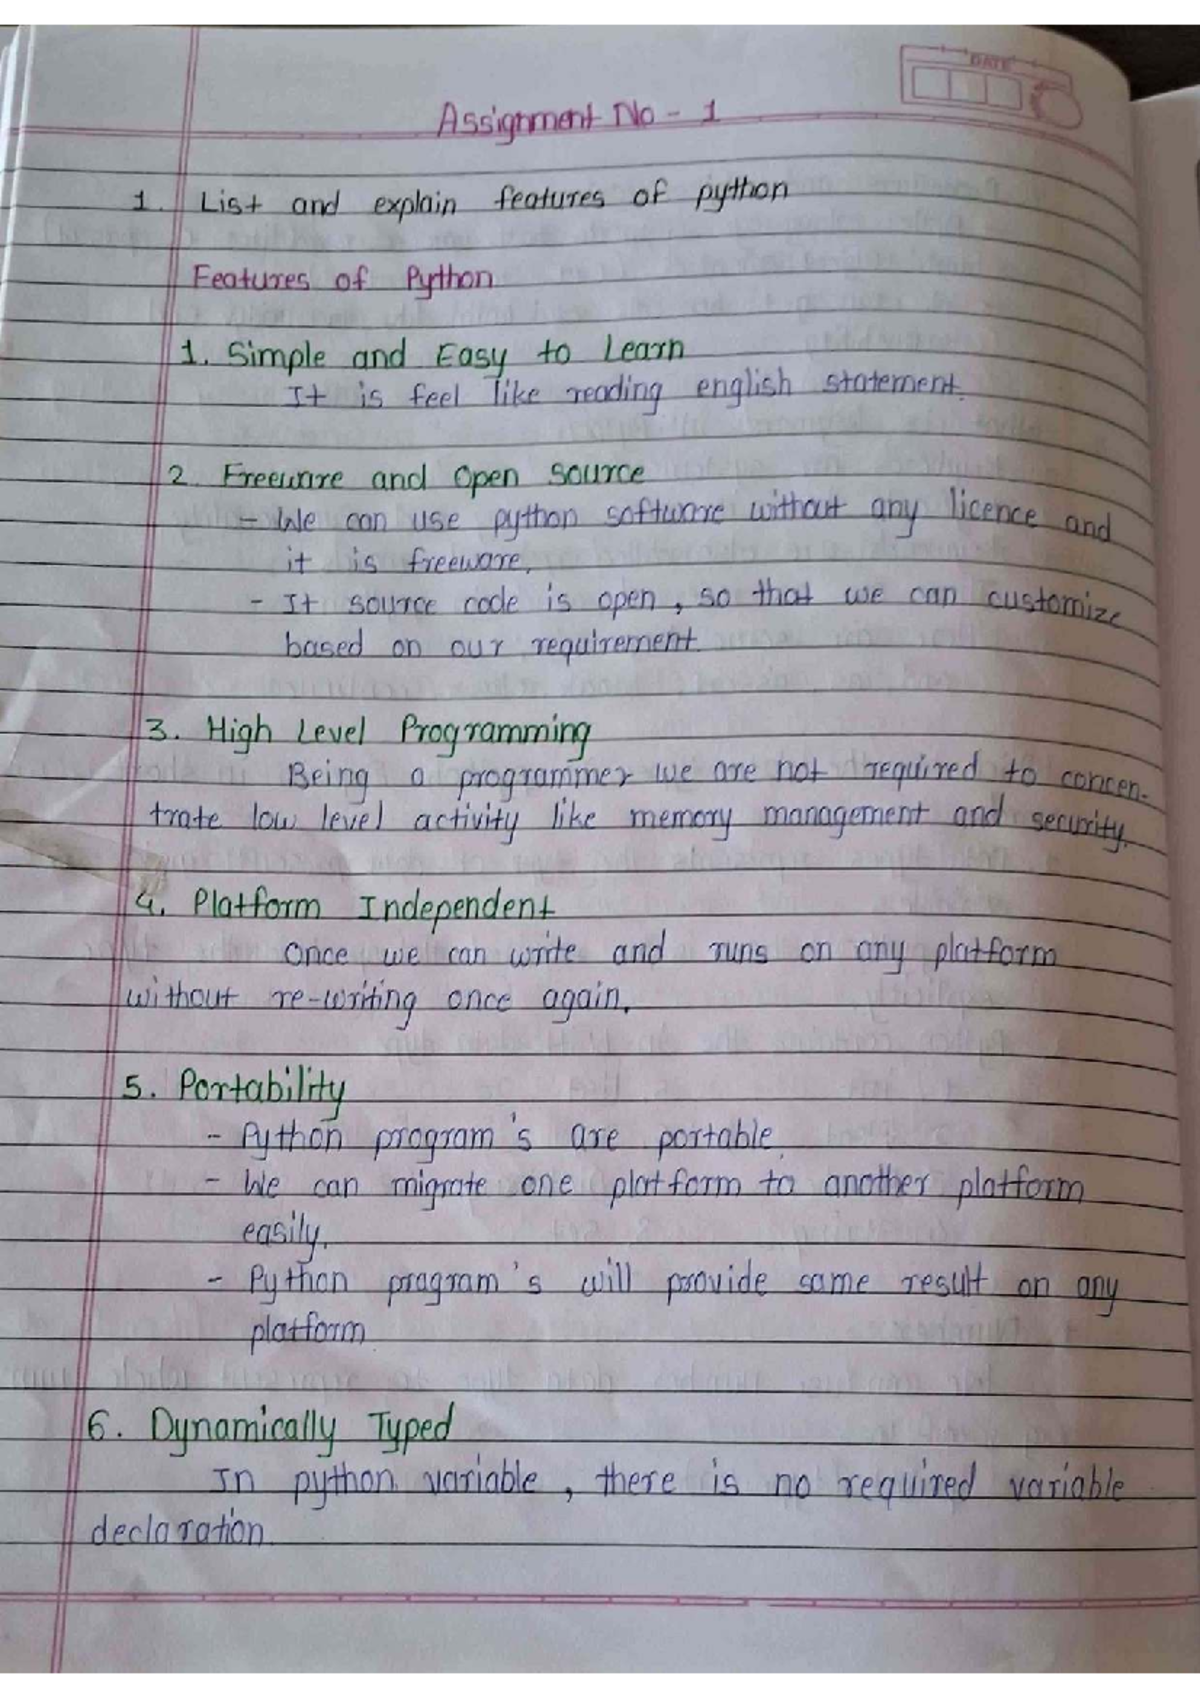 DATE
Assignment No - 1
1. List and explain features of python
Features of Python
1. Simple and Easy to Learn
It is feel like reading english statement.
2. Freeware and Open Source
- We can use python software without any licence and
it is freeware.
- It source code is open, so that we can customize
based on our requirement.
3. High Level Programming
Being a programmer we are not required to concen-
trate low level activity like memory management and security.
4. Platform Independent
Once we can write and runs on any platform
without re-writing once again.
5. Portability
- Python program's are portable.
- We can migrate one platform to another platform
easily.
- Python program's will provide same result on any
platform
6. Dynamically Typed
In python variable, there is no required variable
declaration.